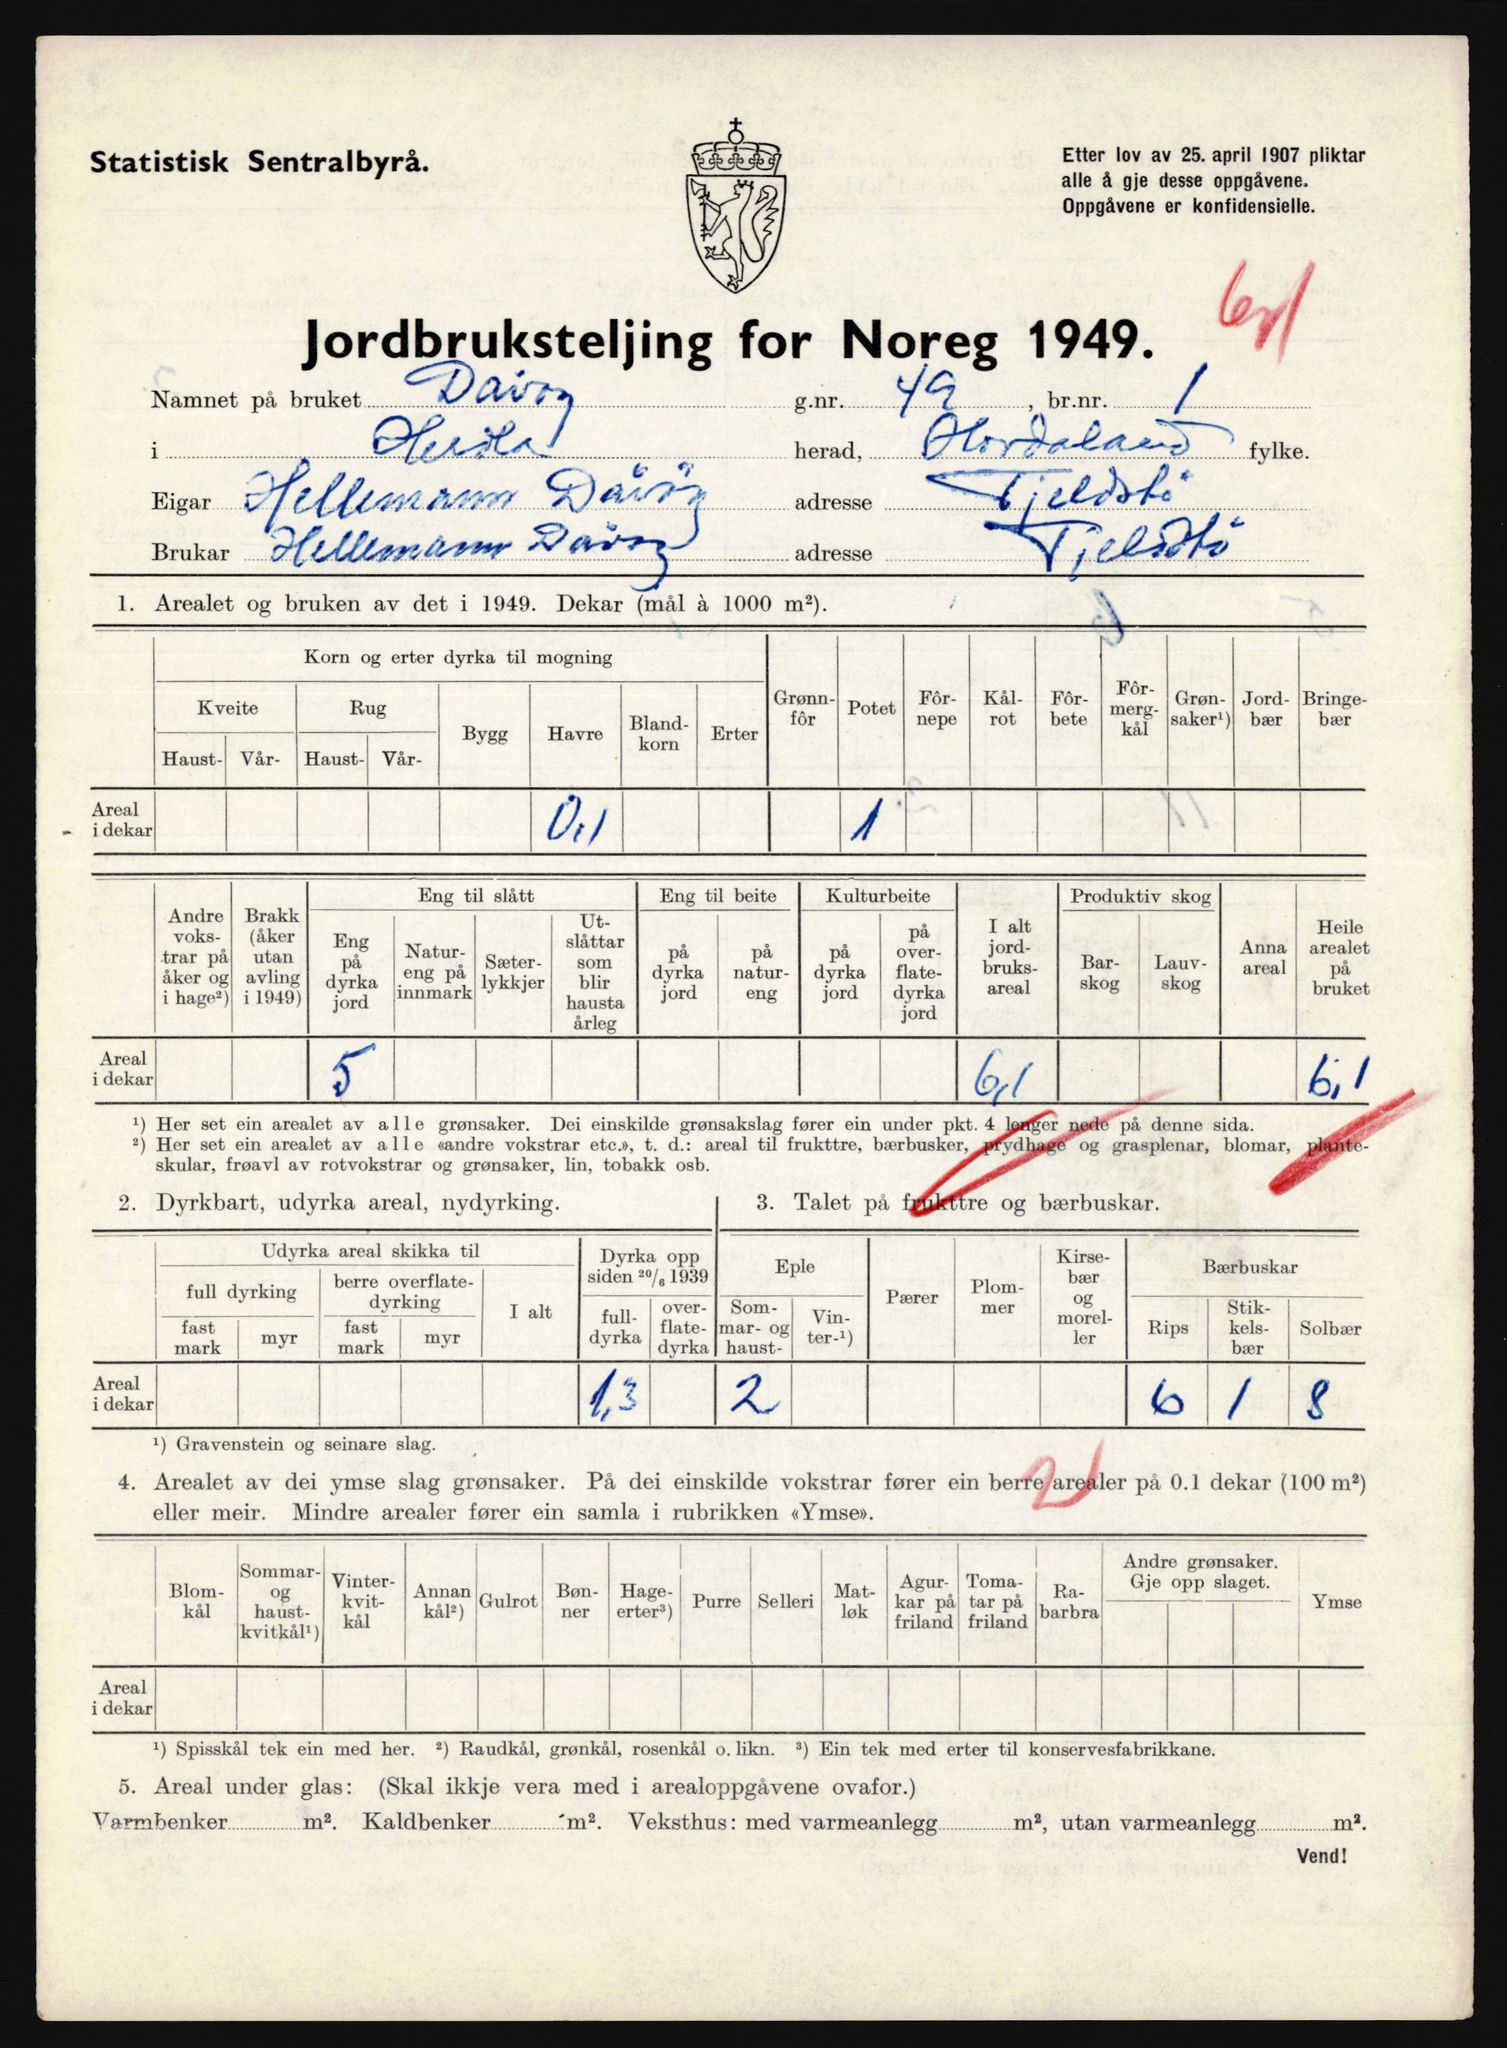 Statistisk Sentralbyrå.
Etter lov av 25. april 1907 pliktar
alle å gje desse oppgåvene.
Oppgåvene er konfidensielle.
Jordbruksteljing for Noreg 1949.
Namnet på bruket Davøy g.nr. 49, br.nr. 1
i Herdla herad, Hordaland fylke.
Eigar Hellemann Davøy adresse Tjeldstö
Brukar Hellemann Davøy adresse Tjeldstö
1. Arealet og bruken av det i 1949. Dekar (mål à 1000 m²).
Korn og erter dyrka til mogning
Kveite Rug Bygg Havre Bland-korn Erter Grønn-fôr Potet Fôr-nepe Kål-rot Fôr-bete Fôr-merg-kål Grøn-saker¹) Jord-bær Bringe-bær
Haust- Vår- Haust- Vår-
Areal i dekar 0,1 1
Andre voks-trar på åker og i hage²) Brakk (åker utan avling i 1949) Eng til slått Eng til beite Kulturbeite I alt jord-bruks-areal Produktiv skog Anna areal Heile arealet på bruket
Eng på dyrka jord Natur-eng på innmark Sæter-lykkjer Ut-slåttar som blir hausta årleg på dyrka jord på natur-eng på dyrka jord på over-flate-dyrka jord Bar-skog Lauv-skog
Areal i dekar 5 6,1 6,1
¹) Her set ein arealet av alle grønsaker. Dei einskilde grønsakslag fører ein under pkt. 4 lenger nede på denne sida.
²) Her set ein arealet av alle «andre vokstrar etc.», t. d.: areal til frukttre, bærbusker, prydhage og grasplenar, blomar, plante-
skular, frøavl av rotvokstrar og grønsaker, lin, tobakk osb.
2. Dyrkbart, udyrka areal, nydyrking.
3. Talet på frukttre og bærbuskar.
Udyrka areal skikka til Dyrka opp siden 20/6 1939 Eple Pærer Plom-mer Kirse-bær og morel-ler Bærbuskar
full dyrking berre overflate-dyrking I alt full-dyrka over-flate-dyrka Som-mar- og haust- Vin-ter-¹) Rips Stik-kels-bær Solbær
fast mark myr fast mark myr
Areal i dekar 1,3 2 6 1 8
¹) Gravenstein og seinare slag.
4. Arealet av dei ymse slag grønsaker. På dei einskilde vokstrar fører ein berre arealer på 0.1 dekar (100 m²)
eller meir. Mindre arealer fører ein samla i rubrikken «Ymse».
2
Blom-kål Sommar- og haust-kvitkål¹) Vinter-kvit-kål Annan kål²) Gulrot Bøn-ner Hage-erter³) Purre Selleri Mat-løk Agur-kar på friland Toma-tar på friland Ra-barbra Andre grønsaker. Gje opp slaget. Ymse
Areal i dekar
¹) Spisskål tek ein med her. ²) Raudkål, grønkål, rosenkål o. likn. ³) Ein tek med erter til konservesfabrikkane.
5. Areal under glas: (Skal ikkje vera med i arealoppgåvene ovafor.)
Varmbenker m². Kaldbenker m². Veksthus: med varmeanlegg m², utan varmeanlegg m².
Vend!